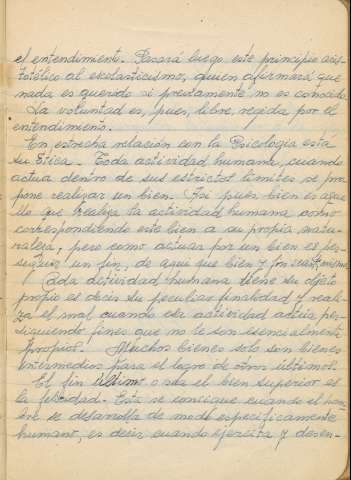 el entendimiento. Pasará luego este principio aris-
totélico al escolasticismo, quien afirmará que
nada es querido si previamente no es conocido.
La voluntad es, pues, libre, regida por el
entendimiento.
En estrecha relación con la Psicología está
su Etica. Toda actividad humana, cuando
actua dentro de sus estrictos límites se pro-
pone realizar un bien. Así pues bien es aque-
llo que realiza la actividad humana como
correspondiendo este bien a su propia natu-
raleza, pero como actuar por un bien es per-
seguir un fin, de aquí que bien y fin sean
Cada actividad humana tiene su objeto
propio es decir su peculiar finalidad y reali-
za el mal cuando esa actividad actúa per-
siguiendo fines que no le son esencialmente
propios. Muchos bienes solo son bienes
intermedios para el logro de otros últimos.
El fin último o sea el bien superior es
la felicidad. Esta se consigue cuando el hom-
bre se desarrolla de modo especificamente
humano, es decir cuando ejercita y desen-